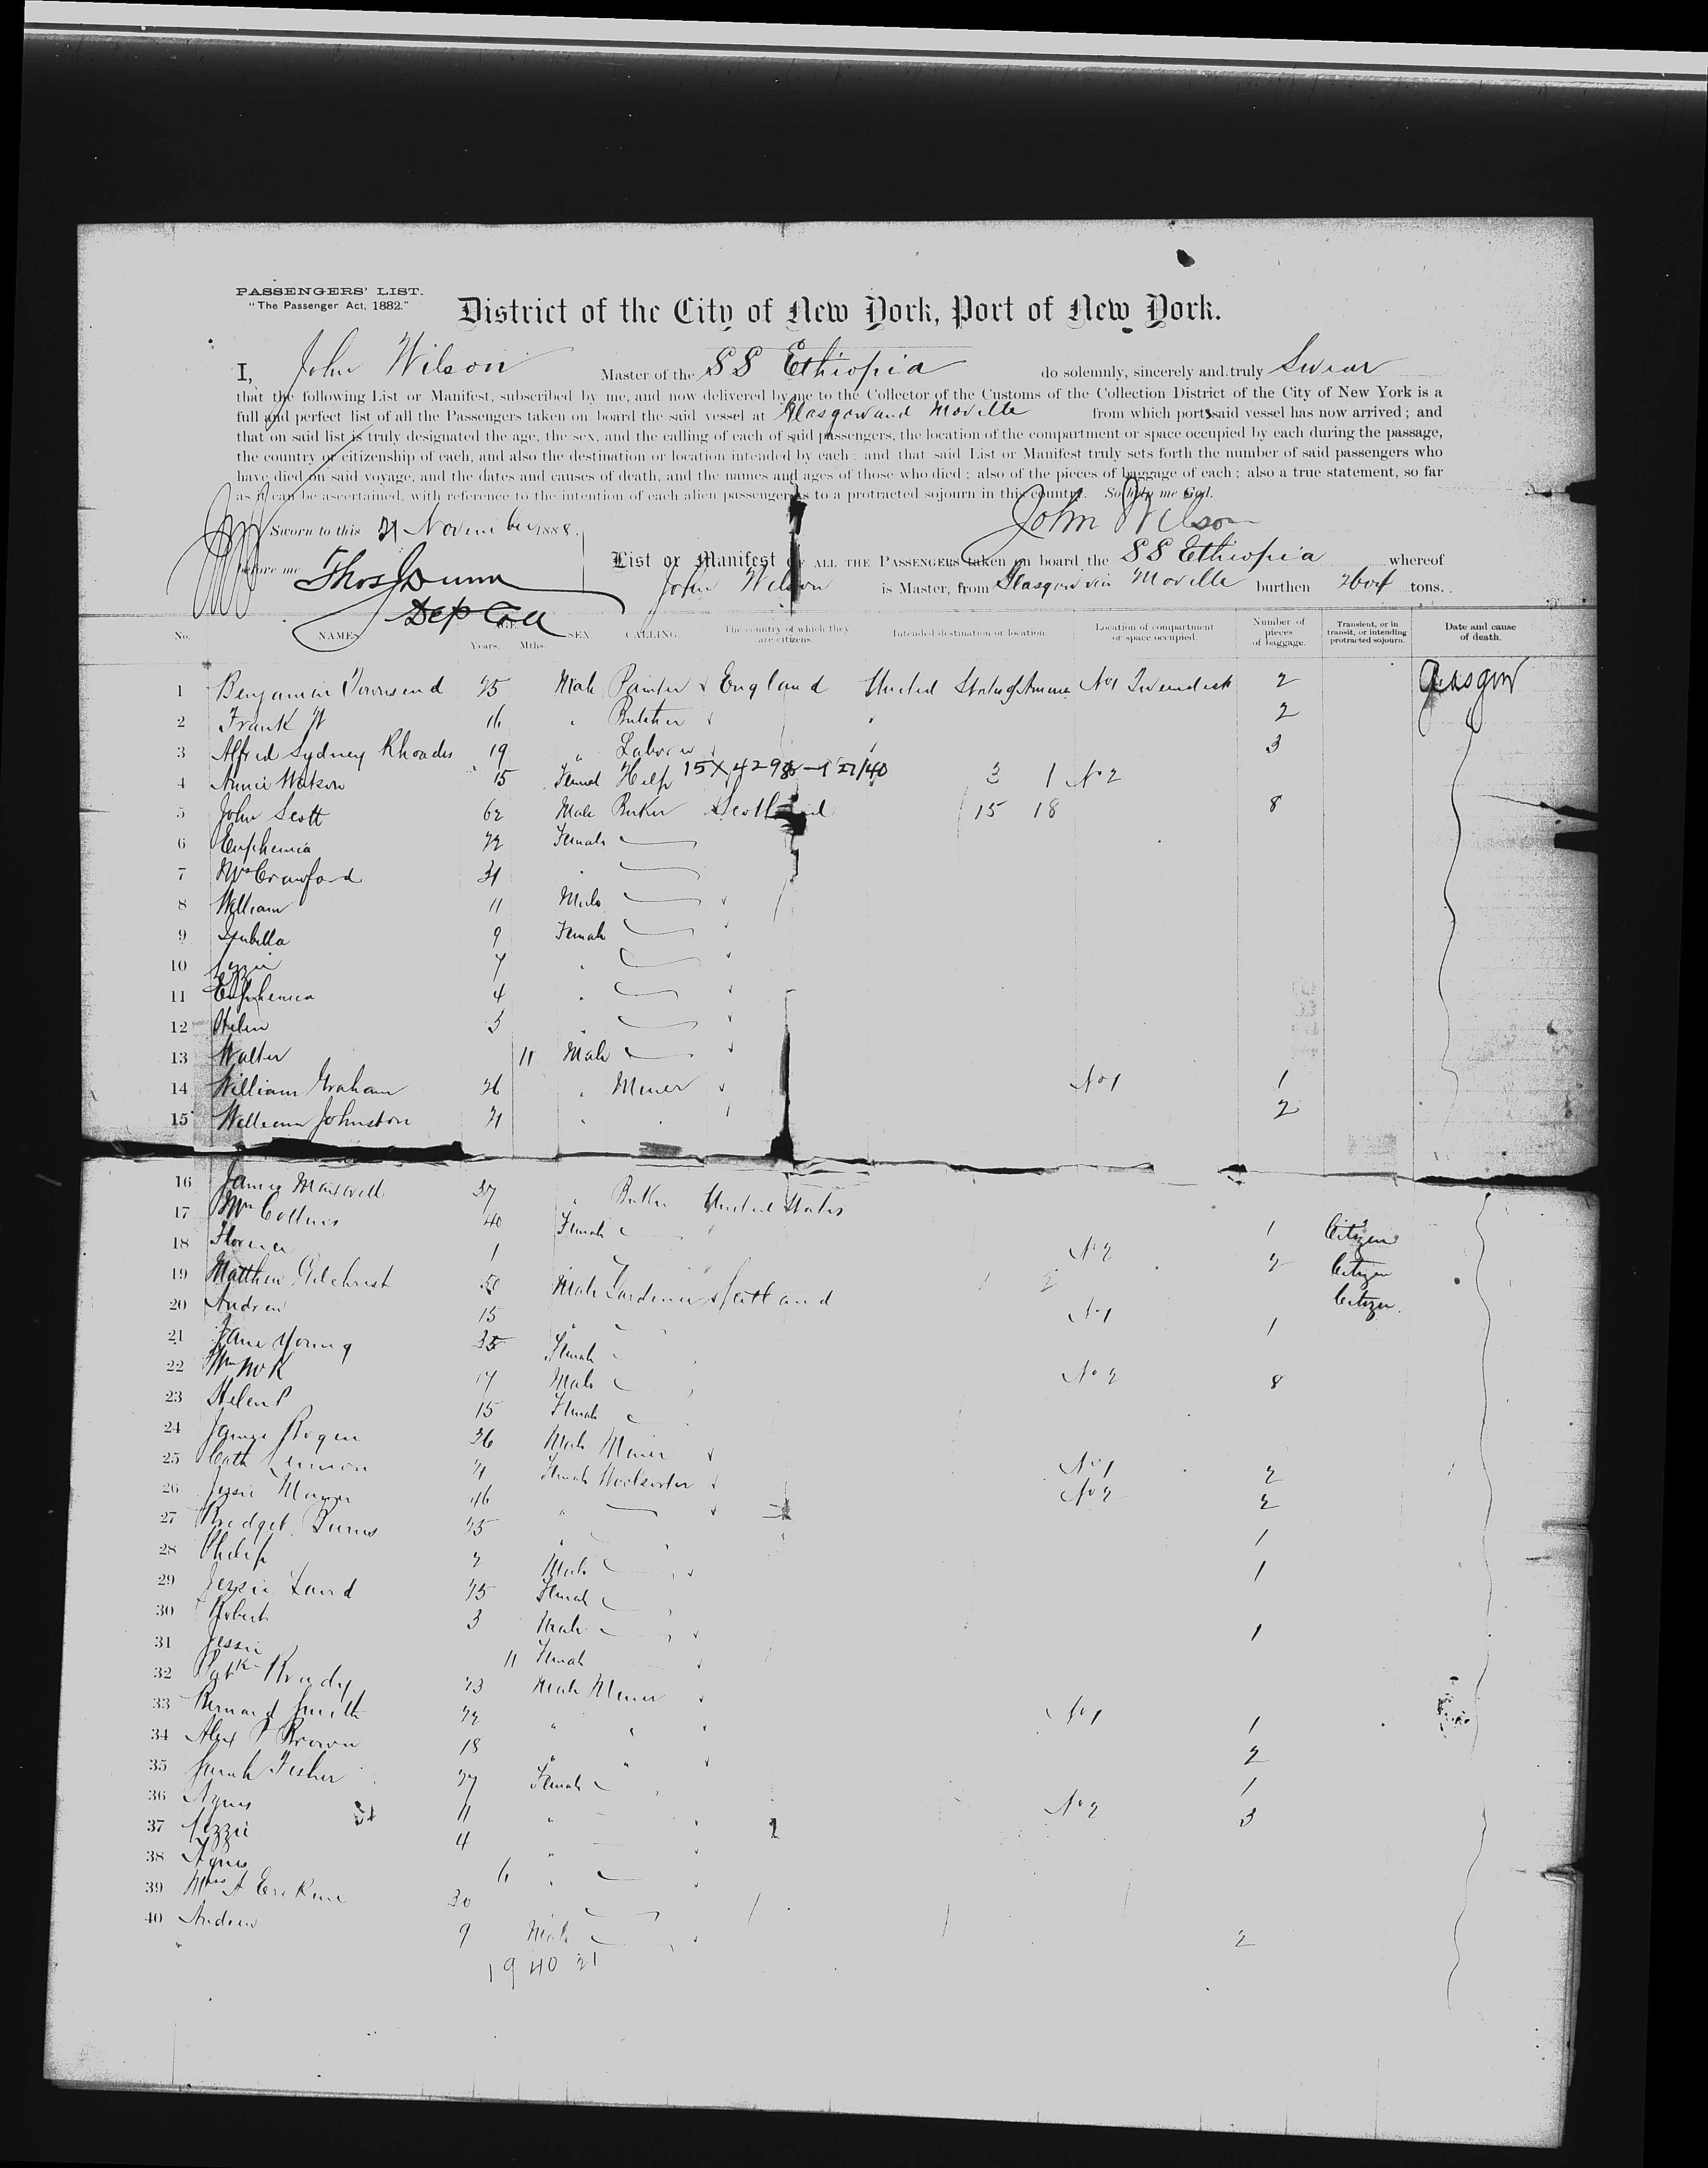 PASSENGERS' LIST.
"The Passenger Act, 1882."
District of the City of New York, Port of New York.
I, John Wilson Master of the SS Ethiopia do solemnly, sincerely and truly Swear
that the following List or Manifest, subscribed by me, and now delivered by me to the Collector of the Customs of the Collection District of the City of New York is a
full and perfect list of all the Passengers taken on board the said vessel at Glasgow and Moville from which ports said vessel has now arrived; and
that on said list is truly designated the age, the sex, and the calling of each of said passengers, the location of the compartment or space occupied by each during the passage,
the country of citizenship of each, and also the destination or location intended by each; and that said List or Manifest truly sets forth the number of said passengers who
have died on said voyage, and the dates and causes of death, and the names and ages of those who died; also of the pieces of baggage of each; also a true statement, so far
as it can be ascertained, with reference to the intention of each alien passenger as to a protracted sojourn in this country. So help me God.
Sworn to this 21 November 1888. John Wilson
before me Thos J Dunn
Dep Coll
List or Manifest OF ALL THE PASSENGERS taken on board the SS Ethiopia whereof
John Wilson is Master, from Glasgow via Moville burthen 2604 tons.
No. NAMES. AGE. Years. Mths. SEX. CALLING. The country of which they are citizens. Intended destination or location. Location of compartment or space occupied. Number of pieces of baggage. Transient, or in transit, or intending protracted sojourn. Date and cause of death.
1 Benjamin Townsend 25 Male Painter England United States of America No 1 Tweendeck 2 Glasgow
2 Frank W 16 " Butcher " 2
3 Alfred Sydney Rhoades 19 " Laborer " 3
4 Annie Watson 15 Female Help 15X4298 3 1 No 2
5 John Scott 62 Male Baker Scotland 15 18 8
6 Euphemia 22 Female
7 Mrs Crawford 31 "
8 William 11 Male
9 Isabella 9 Female
10 Lizzie 7 "
11 Euphemia 4 "
12 Helen 3 "
13 Walter 11 Male
14 William Graham 26 " Miner No 1 1
15 William Johnston 21 " " 2
16 James Maxwell 37 " Baker United States 1 Citizen
17 Mrs Collins 40 Female " No 2 2 Citizen
18 Florence 1 " " Citizen
19 Matthew Gilchrist 50 Male Gardener Scotland No 1 1
20 Andrew 15 "
21 Jane Young 35 Female No 2 8
22 Wm McK 17 Male
23 Helen P 15 Female
24 James Rogen 36 Male Miner No 1 2
25 Cath Lennon 21 Female No 2 2
26 Jessie 46 " 1
27 Bridget Burns 25 " 1
28 Philip 2 Male
29 Jessie Laird 25 Female 1
30 Robert 3 Male
31 Jessie 11 Female
32 Patk Brady 23 Male Miner No 1 1
33 Bernard Smith 22 " " 2
34 Alex P Brown 18 " " 1
35 Sarah Fisher 27 Female No 2 3
36 Agnes 11 "
37 Lizzie 4 "
38 Agnes 6 "
39 Mrs A Erskine 30 2
40 Andrew 9 Male
19 40 21